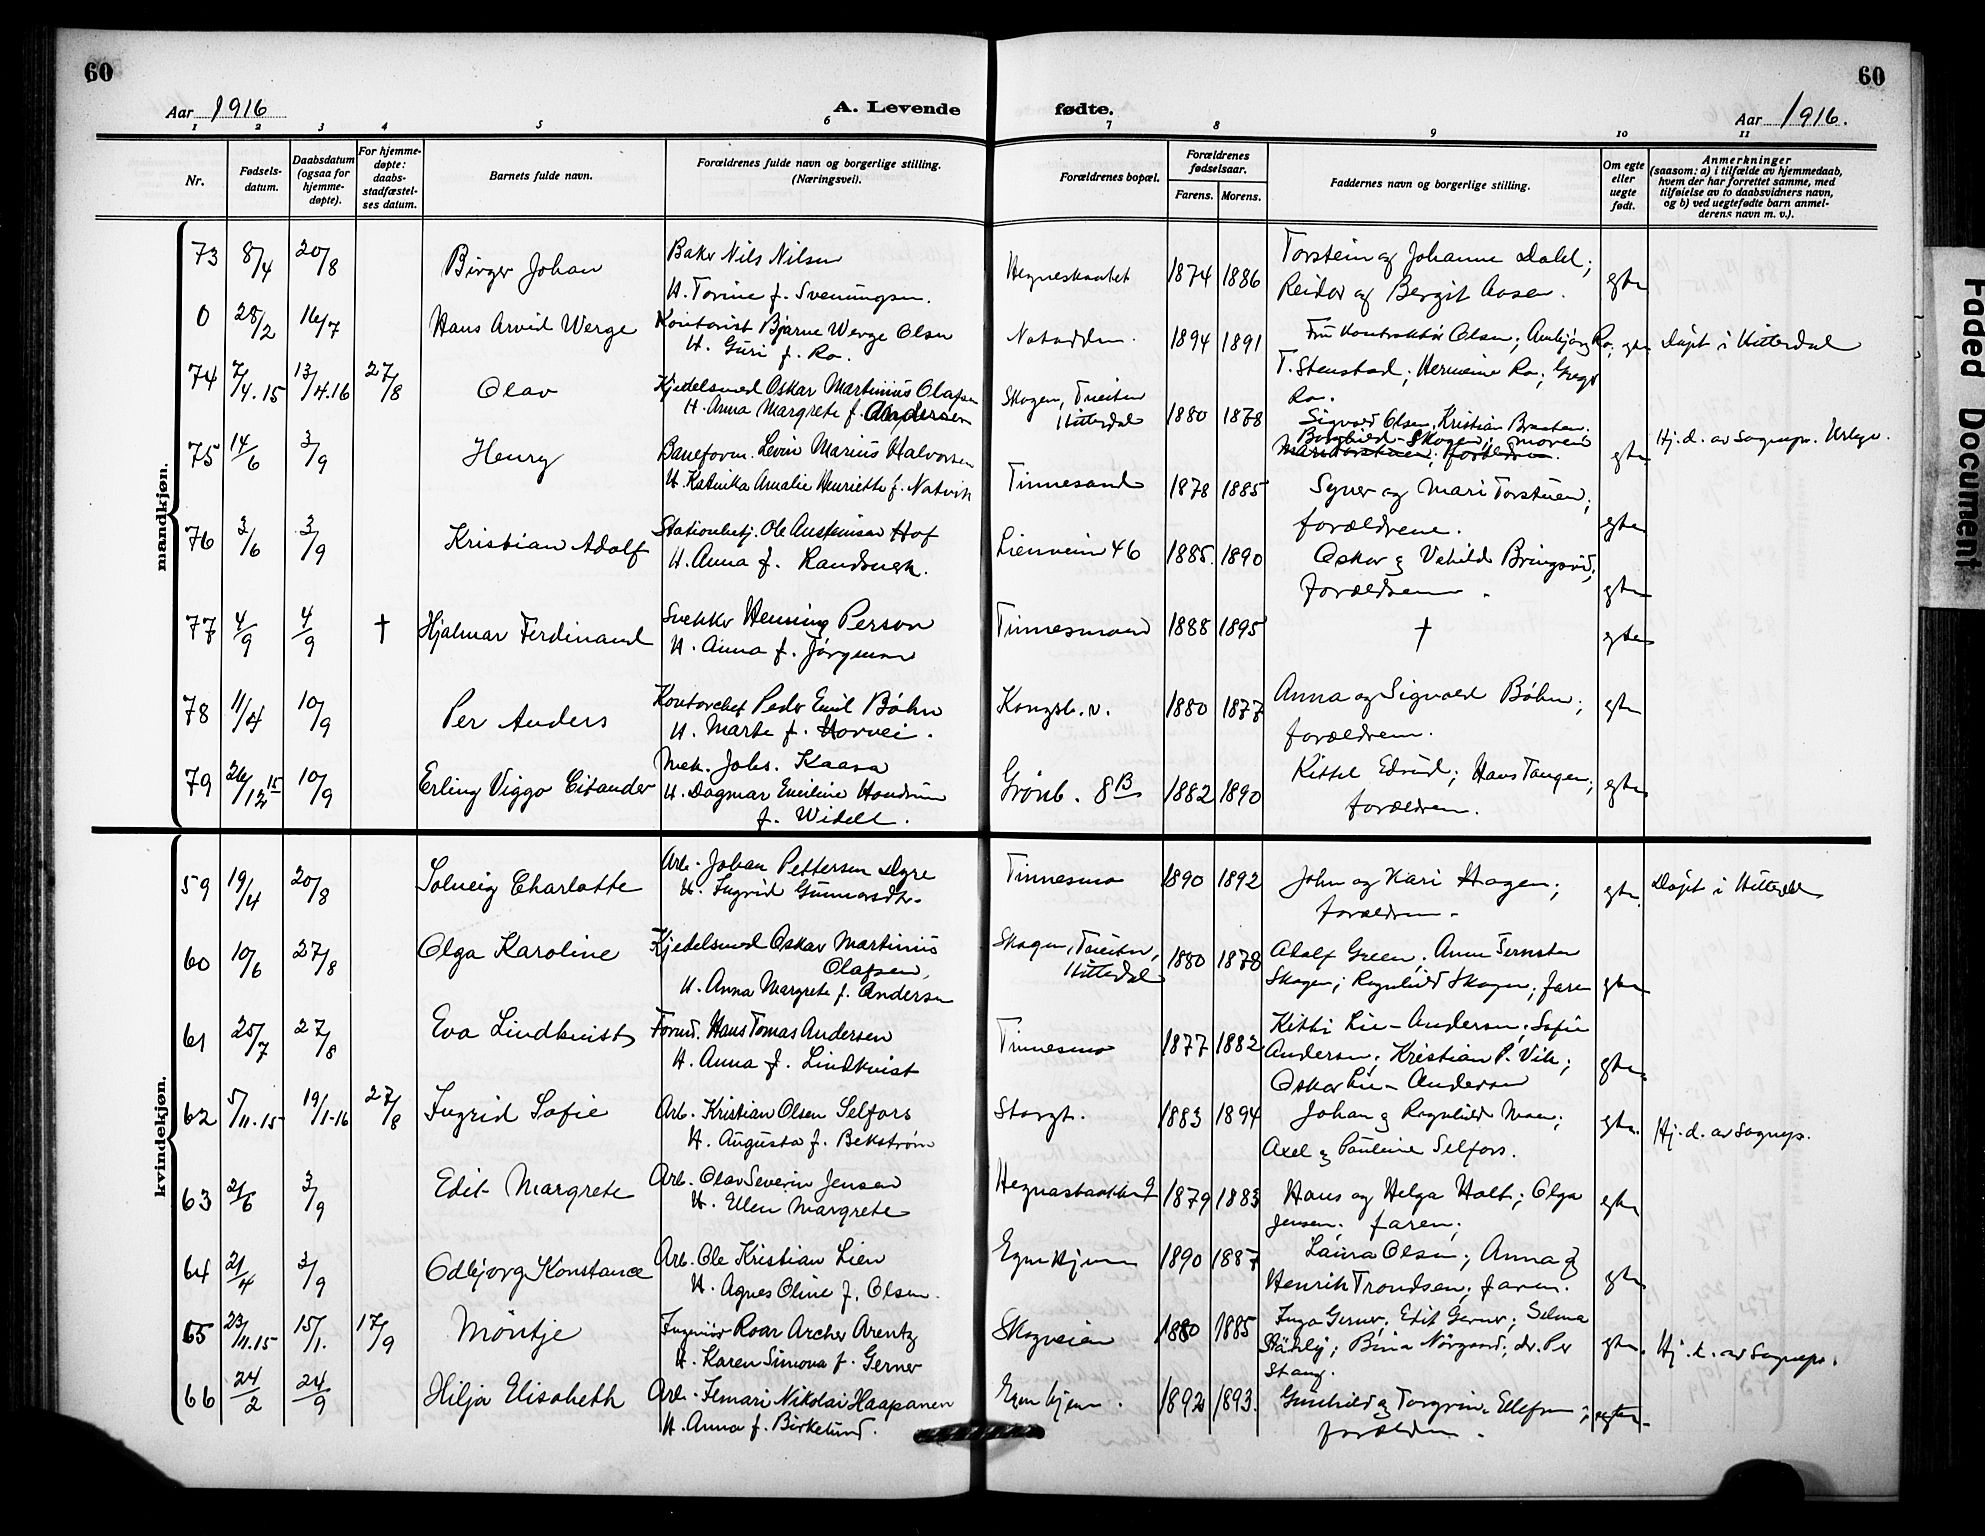 60
60
Aar 1916
A. Levende fødte.
Aar 1916.
1 2 3 4 5 6 7 8 9 10 11
Nr.
Fødsels-
datum.
Daabsdatum
(ogsaa for
hjemme-
døpte).
For hjemme-
døpte:
daabs-
stadfæstel-
ses datum.
Barnets fulde navn.
Forældrenes fulde navn og borgerlige stilling.
(Næringsvei).
Forældrenes bopæl.
Forældrenes
fødselsaar.
Farens. Morens.
Faddernes navn og borgerlige stilling.
Om egte
eller
uegte
født.
Anmerkninger
(saasom: a) i tilfælde av hjemmedaab,
hvem der har forrettet samme, med
tilføielse av to daabsvidners navn,
og b) ved uegtefødte barn anmel-
derens navn m. v.).
mandkjøn.
73 8/4 20/8 Birger Johan
Baker Nils Nilsen
H. Torine f. Sveningsen.
1874 1886
Torstein og Johanne Dahl;
Reidar og Bergit Aasen.
egte
0 28/2 16/7 Hans Arvid Werge
Kontorist Bjarne Werge Olsen
H. Guri f. Ro.
Notodden. 1894 1891
Fru Kontraktør Olsen; Anbjørg Ro; egte
T. Stenstad; Hermine Ro; Gregar
Ro.
Døpt i Hitterdal
74 7/4.15 13/4.16 27/8 Olav
Kjedelsmed Oskar Martinius Olafsen
H. Anna Margrete f. Andersen
Skogen, Tveiten
Hitterdal
1880 1878
Sigvard Olsen, Kristian Braaten.
Borghild Skogen; moren
egte
Hj. d. av Sognepr.
75 14/6 3/9 Henry
Baneform. Levin Marius Halvorsen
H. Katinka Amalie Henriette f. Natvik
Tinnesand 1878 1885
Syver og Mari Torstuen;
forældrene.
egte
76 3/6 3/9 Kristian Adolf
Stationbetj. Ole Austensen Hof
H. Anna f. Randsverk.
Lienveien 46 1885. 1890
Oskar og Valhild Bringsrud;
forældrene.
egte
77 4/9 4/9 † Hjalmar Ferdinand
Snekker Henning Person
H. Anna f. Jørgensen
Tinnesmoen 1888 1895 † egte
78 11/4 10/9 Per Anders
Kontorchef Peder Emil Bøhn
H. Marte f. Horvei.
Kongsb. v. 1880 1877
Anna og Sigvald Bøhn;
forældrene.
egte
79 26/12 15 10/9 Erling Viggo Citander
Mek. Johs. Kaasa
H. Dagmar Emiline
f. Widell.
Grønb. 8B 1882 1890
Kittel Edsrud; Hans Tangen;
forældrene.
egte
kvindekjøn.
59 19/4 20/8 Solveig Charlotte
Arb. Johan Pettersen Dyre
H. Ingrid Gunnarsdtr.
Tinnesmo 1890 1892
John og Kari Hagen;
forældrene.
egte. Døpt i Hitterdal
60 10/6 27/8 Olga Karoline
Kjedelsmed Oskar Martinius
Olafsen,
H. Anna Margrete f. Andersen
Skogen, Tveiten,
Hitterdal
1880 1878
Adolf Green; Anne Ternsten
Skogen; Ragnhild Skogen; faren
egte
61 25/7 27/8 Eva Lindkvist
Formd. Hans Tomas Andersen
H. Anna f. Lindkvist
Tinnesmo 1877 1882
Kitti Lie-Andersen; Sofie
Andersen; Kristian P. Vik;
Oskar Lie-Andersen
egte.
62 5/11.15 19/1-16 27/8 Ingrid Sofie
Arb. Kristian Olsen Selfors
H. Augusta f. Bekstrøm
Storgt. 1883 1894
Johan og Ragnhild Moen;
Axel og Pauline Selfors.
egte. Hj. d. av Sognepr.
63 21/6 3/9 Edit Margrete
Arb. Olav Severin Jensen
H. Ellen Margrete
1879 1883
Hans og Helga Holt; Olga
Jensen. faren.
egte
64 21/4 3/9 Odbjørg Konstance
Arb. Ole Kristian Lien
H. Agnes Oline f. Olsen.
Egne Hjem 1890 1887
Laura Olsen; Anna og
Henrik Trondsen; faren.
egte
65 23/11.15 15/1. 17/9 Møntje
Ingeniør Roar Archer Arentz
H. Karen Simona f. Gerner
Skogveien 1880 1885
Inga Gerner; Edit Gerner; Selma
Ståhly; Bina Nørgaard; dr. Per
Stang.
egte. Hj. d. av Sognepr.
66 24/2 24/9 Hilja Elisabeth
Arb. Ilmari Nikolai Haapanen
H. Anna f. Birkelund.
Egne hjem. 1892 1893.
Gunhild og Torgrim Ellefsen;
forældrene.
egte.
Faded Document